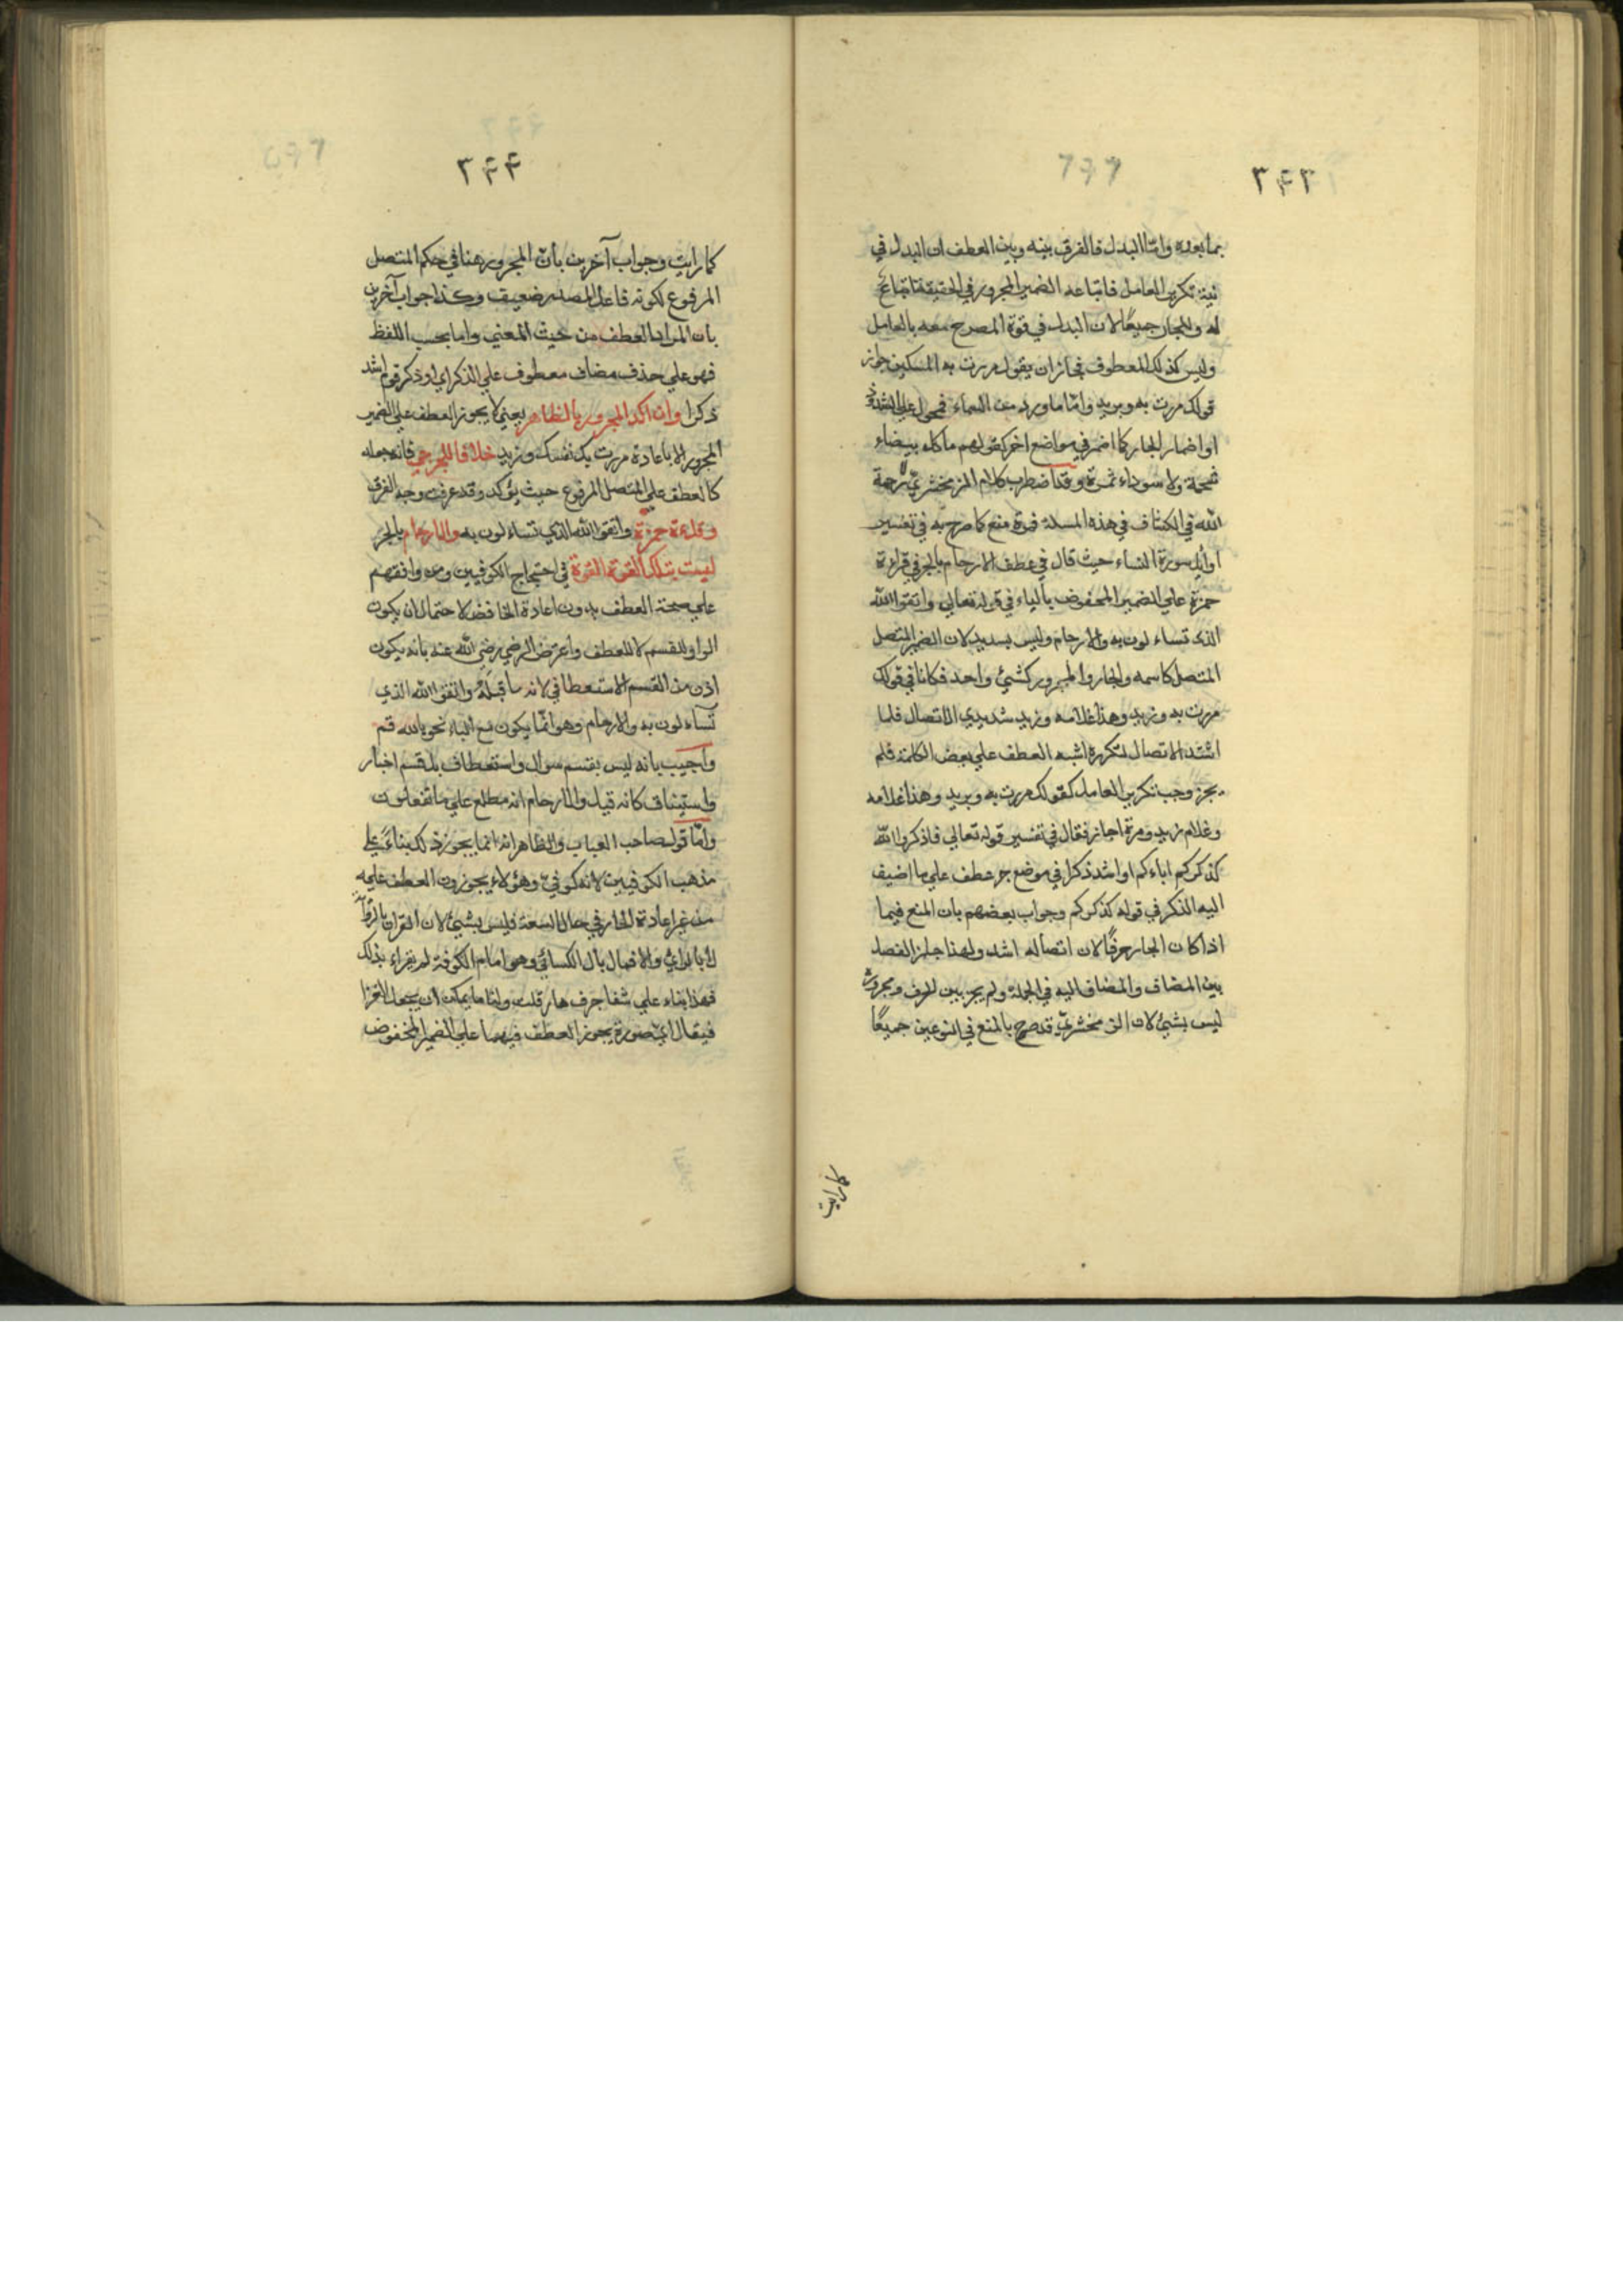 ٣۴٣
بما بعده وامّا البدل فالفرق بينه وبين العطف ان البدل في
نية تكرير العامل فاتباعه الضمير المجرور في الحقيقة اتباع
له وللجار جميعًا لان البدل في قوة المصرح معه بالعامل
وليس كذلك المعطوف فجائز ان يقول مررت به المسكين جواز
قولك مررت به وبزيد وامّا ما ورد من السماء فمحمول على الشذوذ
او اضمار الجار كما اضمر في مواضع اخر كقولهم ما كل بيضاء
شحمة ولا سوداء تمرة وقد اضطرب كلام الزمخشريّ رحمة
الله في الكشاف في هذه المسلة فمرة منع كما صرح به في تفسير
اوائل سورة النساء حيث قال في عطف الارحام بالجر في قراءة
حمزة علي الضمير المخفوض بالباء في قوله تعالي واتقوا الله
الذي تساءلون به والارحام وليس بسديد لان الضمير المتصل
المتصل كاسمه والجار والمجرور كشيئ واحد فكانا في قولك
مررت به وزيد وهذا غلامه وزيد شديدي الاتصال فلما
اشتد الاتصال لتكرره اشبه العطف علي بعض الكلمة فلم
يجز وجب تكرير العامل كقولك مررت به وبزيد وهذا غلامه
وغلام زيد ومرة اجاز فقال في تفسير قوله تعالي فاذكروا اللّه
كذكركم اباءكم او اشد ذكرا في موضع جر عطف علي ما اضيف
اليه الذكر في قوله كذكركم وجواب بعضهم بان المنع فيما
اذا كان الجار حرفًا لان اتصاله اشد ولهذا جاز الفصل
بين المضاف والمضاف اليه في الجملة ولم يجز بين الحرف ومجروره
ليس بشيئ لان الزمخشريّ قد صرح بالمنع في النوعين جميعًا
كما رايت
٣۴۴
كما رايت وجواب آخرين بانّ المجرور هنا في حكم المتصل
المرفوع لكونه فاعل المصدر ضعيف وكذا جواب آخرين
بان المراد العطف من حيث المعني واما بحسب اللفظ
فهو علي حذف مضاف معطوف علي الذكر اي او ذكر قوم اشد
ذكرا وان اكد المجرور بالظاهر يعني لا يجوز العطف علي الضمير
المجرور الا باعادة مررت بك نفسك وزيد خلافا للجرمي فانه جعله
كالعطف علي المتصل المرفوع حيث يؤكد وقد عرفت وجه الفرق
وقراءة حمزة واتقوا الله الذي تساءلون به والارحام بالجر
ليست بتلك القوة القوة في احتجاج الكوفيين ومن وافقهم
علي صحة العطف بدون اعادة الخافض لاحتمال ان يكون
الواو للقسم لا للعطف واعترض الرضي رضي الله عنه بانه يكون
اذن من القسم الاستعطافي لانه ما قبله واتقوا الله الذي
تساءلون به والارحام وهو انّما يكون مع الباء نحو بالله قم
واجيب بانه ليس بقسم سوال واستعطاف بل قسم اخبار
واستيناف كانه قيل والارحام انه مطلع علي ما تفعلون
وامّا قول صاحب العباب والظاهر انه انما يجوز ذلك بناءً علي
مذهب الكوفيين لانه كوفيّ وهؤلاء يجوزون العطف عليه
من غير اعادة الجار في حال السعة فليس بشيئ لان القران بالرواية
لا بالراي والا فما بال الكسائي وهو امام الكوفة لم يقراء بذلك
فهذا بناء علي شفا جرف هار قلت ولنا ما يمكن ان يجعل الغزا
فيقال اي صورة يجوز العطف فيهما علي الضمير المخفوض